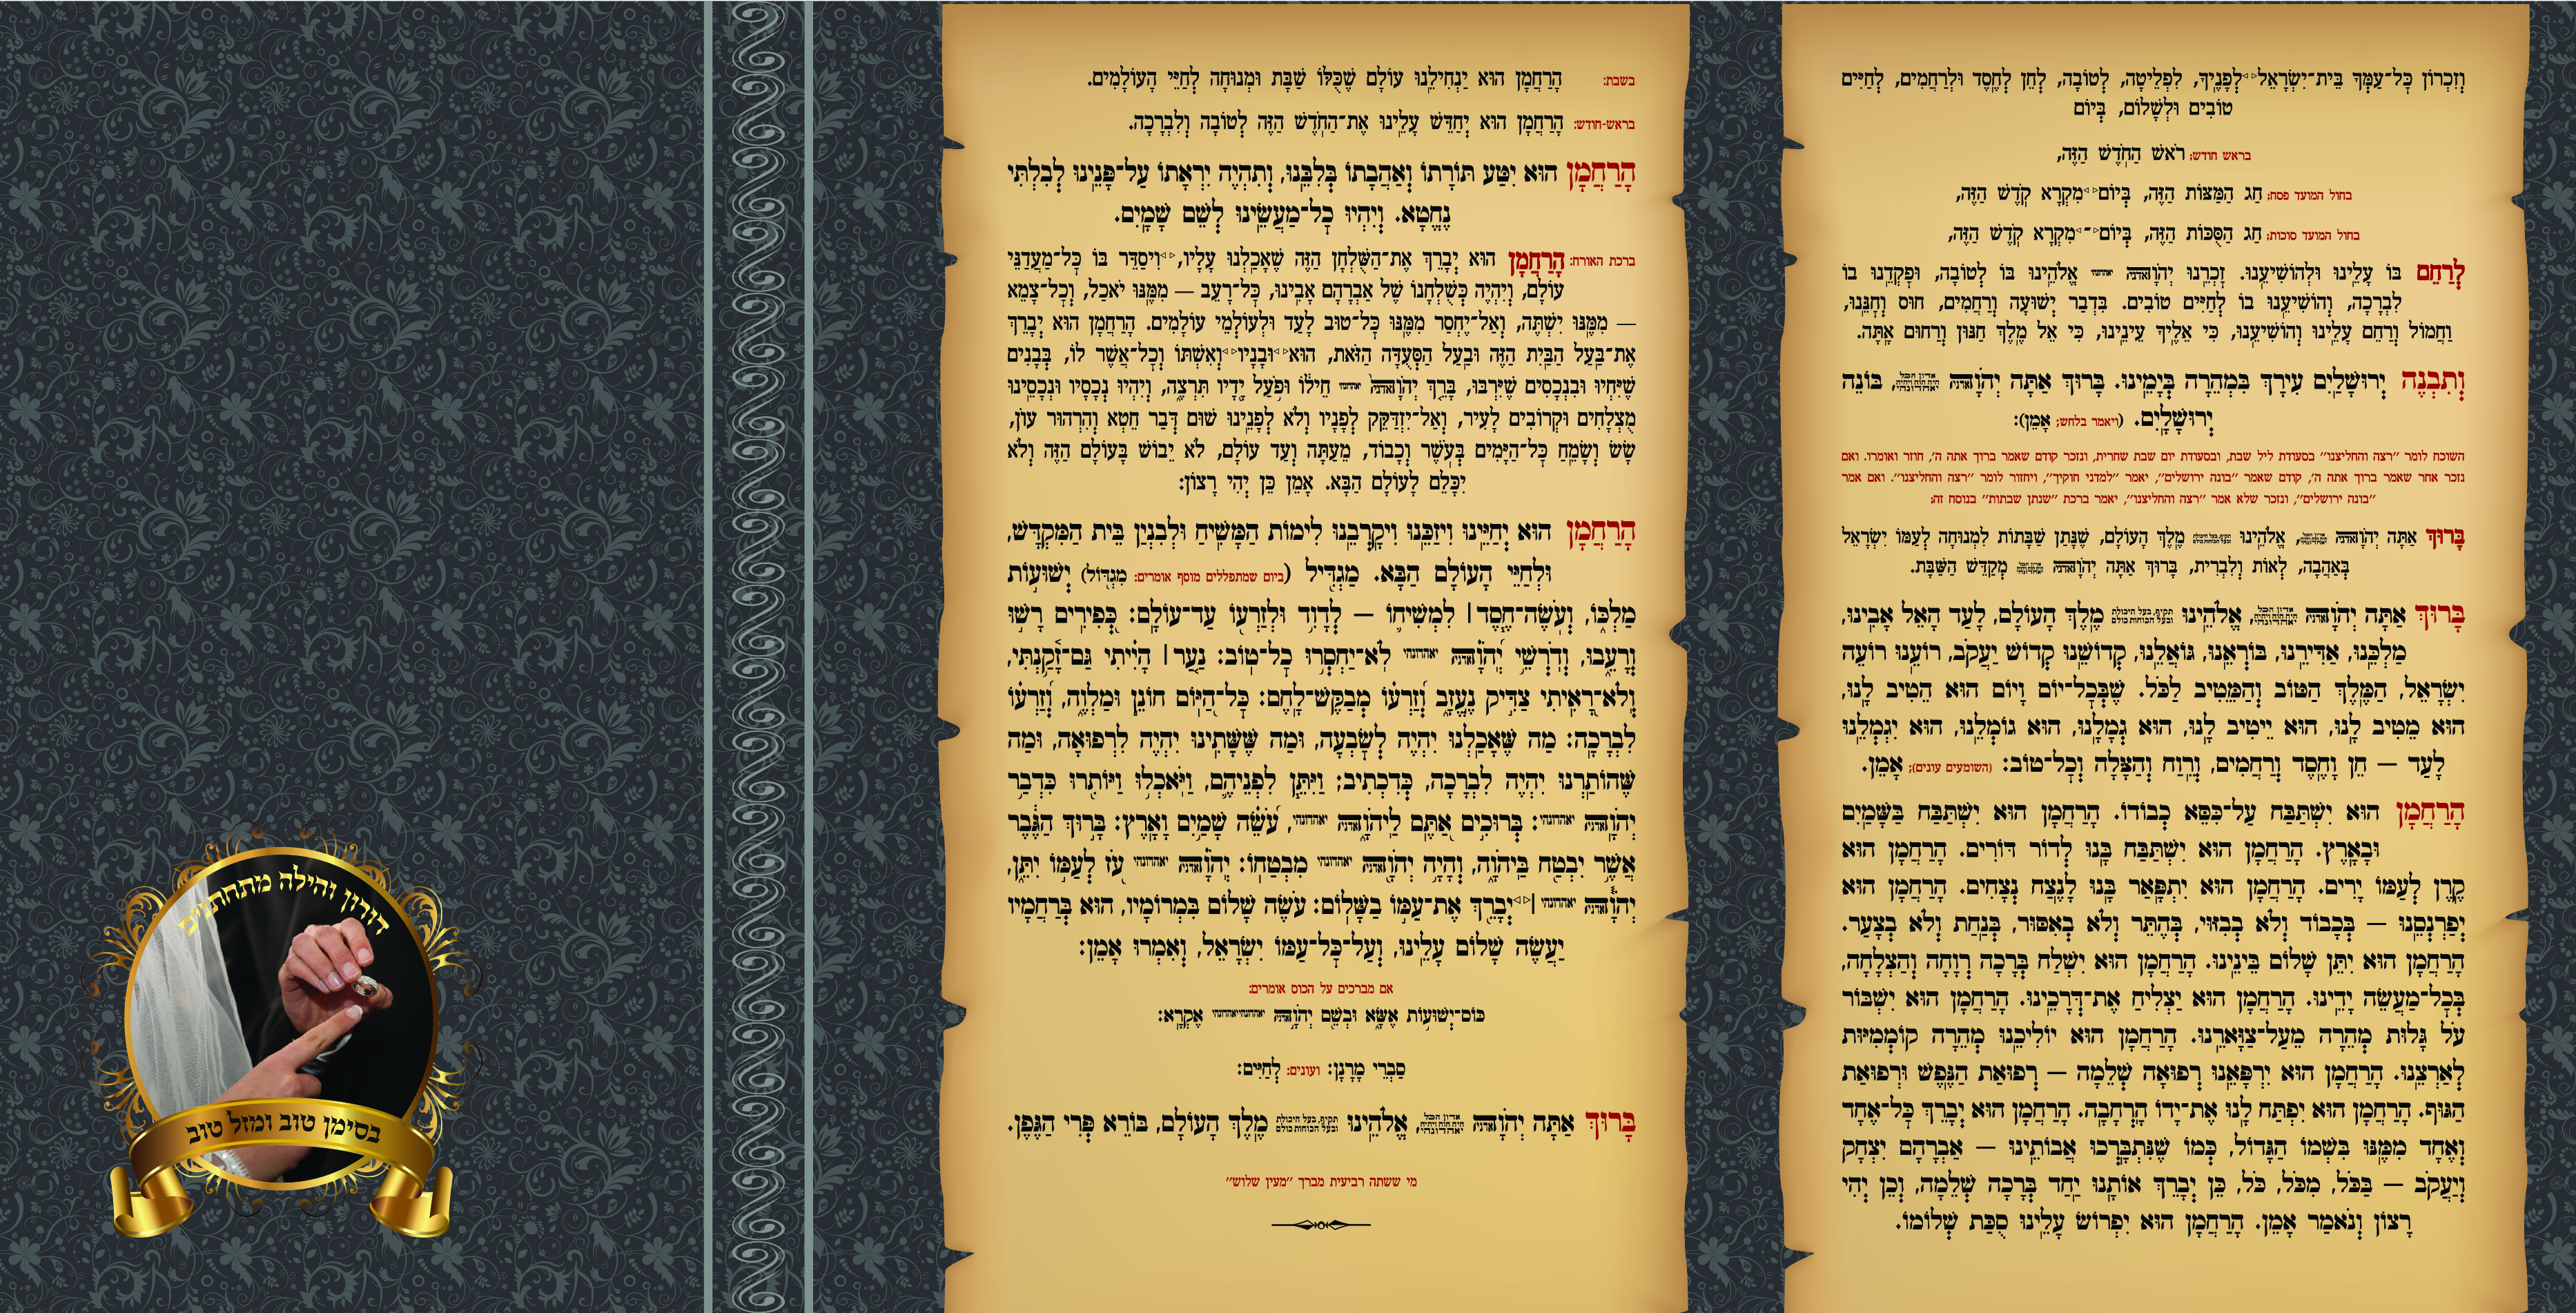 וְזִכְרוֹן כָּל־עַמְּךָ בֵּית־יִשְׂרָאֵל לְפָנֶיךָ, לִפְלֵיטָה, לְטוֹבָה, לְחֵן לְחֶסֶד וּלְרַחֲמִים, לְחַיִּים
טוֹבִים וּלְשָׁלוֹם, בְּיוֹם
בראש חודש: רֹאשׁ הַחֹדֶשׁ הַזֶּה,
בחול המועד פסח: חַג הַמַּצּוֹת הַזֶּה, בְּיוֹם מִקְרָא קֹדֶשׁ הַזֶּה,
בחול המועד סוכות: חַג הַסֻּכּוֹת הַזֶּה, בְּיוֹם מִקְרָא קֹדֶשׁ הַזֶּה,
לְרַחֵם בּוֹ עָלֵינוּ וּלְהוֹשִׁיעֵנוּ. זָכְרֵנוּ יְהֹוָה יאהדונהי אֱלֹהֵינוּ בּוֹ לְטוֹבָה, וּפָקְדֵנוּ בוֹ
לִבְרָכָה, וְהוֹשִׁיעֵנוּ בוֹ לְחַיִּים טוֹבִים. בִּדְבַר יְשׁוּעָה וְרַחֲמִים, חוּס וְחָנֵּנוּ,
וַחֲמוֹל וְרַחֵם עָלֵינוּ וְהוֹשִׁיעֵנוּ, כִּי אֵלֶיךָ עֵינֵינוּ, כִּי אֵל מֶלֶךְ חַנּוּן וְרַחוּם אָתָּה.
וְתִבְנֶה יְרוּשָׁלַיִם עִירָךְ בִּמְהֵרָה בְיָמֵינוּ. בָּרוּךְ אַתָּה יְהֹוָה, בּוֹנֵה
יְרוּשָׁלָיִם. (ויאמר בלחש: אָמֵן):
השוכח לומר ״רצה והחליצנו״ בסעודת ליל שבת, ובסעודת יום שבת שחרית, ונזכר קודם שאמר ברוך אתה ה׳, חוזר ואומרו. ואם
נזכר אחר שאמר ברוך אתה ה׳, קודם שאמר ״בונה ירושלים״, יאמר ״למדני חוקיך״, ויחזור לומר ״רצה והחליצנו״. ואם אמר
״בונה ירושלים״, ונזכר שלא אמר ״רצה והחליצנו״, יאמר ברכת ״שנתן שבתות״ בנוסח זה:
בָּרוּךְ אַתָּה יְהֹוָה, אֱלֹהֵינוּ מֶלֶךְ הָעוֹלָם, שֶׁנָּתַן שַׁבָּתוֹת לִמְנוּחָה לְעַמּוֹ יִשְׂרָאֵל
בְּאַהֲבָה, לְאוֹת וְלִבְרִית, בָּרוּךְ אַתָּה יְהֹוָה מְקַדֵּשׁ הַשַּׁבָּת.
בָּרוּךְ אַתָּה יְהֹוָה, אֱלֹהֵינוּ תקיף, בעל היכולת ובעל הכוחות כולם מֶלֶךְ הָעוֹלָם, לָעַד הָאֵל אָבִינוּ,
מַלְכֵּנוּ, אַדִּירֵנוּ, בּוֹרְאֵנוּ, גּוֹאֲלֵנוּ, קְדוֹשֵׁנוּ קְדוֹשׁ יַעֲקֹב, רוֹעֵנוּ רוֹעֵה
יִשְׂרָאֵל, הַמֶּלֶךְ הַטּוֹב וְהַמֵּטִיב לַכֹּל. שֶׁבְּכָל־יוֹם וָיוֹם הוּא הֵטִיב לָנוּ,
הוּא מֵטִיב לָנוּ, הוּא יֵיטִיב לָנוּ, הוּא גְמָלָנוּ, הוּא גוֹמְלֵנוּ, הוּא יִגְמְלֵנוּ
לָעַד — חֵן וָחֶסֶד וְרַחֲמִים, וְרֵוַח וְהַצָּלָה וְכָל־טוֹב: (השומעים עונים): אָמֵן.
הָרַחֲמָן הוּא יִשְׁתַּבַּח עַל־כִּסֵּא כְבוֹדוֹ. הָרַחֲמָן הוּא יִשְׁתַּבַּח בַּשָּׁמַיִם
וּבָאָרֶץ. הָרַחֲמָן הוּא יִשְׁתַּבַּח בָּנוּ לְדוֹר דּוֹרִים. הָרַחֲמָן הוּא
קֶרֶן לְעַמּוֹ יָרִים. הָרַחֲמָן הוּא יִתְפָּאַר בָּנוּ לָנֶצַח נְצָחִים. הָרַחֲמָן הוּא
יְפַרְנְסֵנוּ — בְּכָבוֹד וְלֹא בְבִזּוּי, בְּהֶתֵּר וְלֹא בְאִסּוּר, בְּנַחַת וְלֹא בְצָעַר.
הָרַחֲמָן הוּא יִתֵּן שָׁלוֹם בֵּינֵינוּ. הָרַחֲמָן הוּא יִשְׁלַח בְּרָכָה רְוָחָה וְהַצְלָחָה,
בְּכָל־מַעֲשֵׂה יָדֵינוּ. הָרַחֲמָן הוּא יַצְלִיחַ אֶת־דְּרָכֵינוּ. הָרַחֲמָן הוּא יִשְׁבּוֹר
עֹל גָּלוּת מְהֵרָה מֵעַל־צַוָּארֵנוּ. הָרַחֲמָן הוּא יוֹלִיכֵנוּ מְהֵרָה קוֹמְמִיּוּת
לְאַרְצֵנוּ. הָרַחֲמָן הוּא יִרְפָּאֵנוּ רְפוּאָה שְׁלֵמָה — רְפוּאַת הַנֶּפֶשׁ וּרְפוּאַת
הַגּוּף. הָרַחֲמָן הוּא יִפְתַּח לָנוּ אֶת־יָדוֹ הָרְחָבָה. הָרַחֲמָן הוּא יְבָרֵךְ כָּל־אֶחָד
וְאֶחָד מִמֶּנּוּ בִּשְׁמוֹ הַגָּדוֹל, כְּמוֹ שֶׁנִּתְבָּרְכוּ אֲבוֹתֵינוּ — אַבְרָהָם יִצְחָק
וְיַעֲקֹב — בַּכֹּל, מִכֹּל, כֹּל, כֵּן יְבָרֵךְ אוֹתָנוּ יַחַד בְּרָכָה שְׁלֵמָה, וְכֵן יְהִי
רָצוֹן וְנֹאמַר אָמֵן. הָרַחֲמָן הוּא יִפְרוֹשׂ עָלֵינוּ סֻכַּת שְׁלוֹמוֹ.
בשבת: הָרַחֲמָן הוּא יַנְחִילֵנוּ עוֹלָם שֶׁכֻּלּוֹ שַׁבָּת וּמְנוּחָה לְחַיֵּי הָעוֹלָמִים.
בראש-חודש: הָרַחֲמָן הוּא יְחַדֵּשׁ עָלֵינוּ אֶת־הַחֹדֶשׁ הַזֶּה לְטוֹבָה וְלִבְרָכָה.
הָרַחֲמָן הוּא יִטַּע תּוֹרָתוֹ וְאַהֲבָתוֹ בְּלִבֵּנוּ, וְתִהְיֶה יִרְאָתוֹ עַל־פָּנֵינוּ לְבִלְתִּי
נֶחֱטָא. וְיִהְיוּ כָל־מַעֲשֵׂינוּ לְשֵׁם שָׁמָיִם.
ברכת האורח: הָרַחֲמָן הוּא יְבָרֵךְ אֶת־הַשֻּׁלְחָן הַזֶּה שֶׁאָכַלְנוּ עָלָיו, וִיסַדֵּר בּוֹ כָּל־מַעֲדַנֵּי
עוֹלָם, וְיִהְיֶה כְּשֻׁלְחָנוֹ שֶׁל אַבְרָהָם אָבִינוּ, כָּל־רָעֵב — מִמֶּנּוּ יֹאכַל, וְכָל־צָמֵא
— מִמֶּנּוּ יִשְׁתֶּה, וְאַל־יֶחְסַר מִמֶּנּוּ כָּל־טוּב לָעַד וּלְעוֹלְמֵי עוֹלָמִים. הָרַחֲמָן הוּא יְבָרֵךְ
אֶת־בַּעַל הַבַּיִת הַזֶּה וּבַעַל הַסְּעֻדָּה הַזֹּאת, הוּא וּבָנָיו וְאִשְׁתּוֹ וְכָל־אֲשֶׁר לוֹ, בְּבָנִים
שֶׁיִּחְיוּ וּבִנְכָסִים שֶׁיִּרְבּוּ, בָּרֵךְ יְהֹוָה יאהדונהי חֵילוֹ וּפֹעַל יָדָיו תִּרְצֶה, וְיִהְיוּ נְכָסָיו וּנְכָסֵינוּ
מֻצְלָחִים וּקְרוֹבִים לָעִיר, וְאַל־יִזְדַּקֵּק לְפָנָיו וְלֹא לְפָנֵינוּ שׁוּם דְּבַר חֵטְא וְהִרְהוּר עוֹן,
שָׂשׂ וְשָׂמֵחַ כָּל־הַיָּמִים בְּעֹשֶׁר וְכָבוֹד, מֵעַתָּה וְעַד עוֹלָם, לֹא יֵבוֹשׁ בָּעוֹלָם הַזֶּה וְלֹא
יִכָּלֵם לָעוֹלָם הַבָּא. אָמֵן כֵּן יְהִי רָצוֹן:
הָרַחֲמָן הוּא יְחַיֵּינוּ וִיזַכֵּנוּ וִיקָרְבֵנוּ לִימוֹת הַמָּשִׁיחַ וּלְבִנְיַן בֵּית הַמִּקְדָּשׁ,
וּלְחַיֵּי הָעוֹלָם הַבָּא. מַגְדִּיל (ביום שמתפללים מוסף אומרים: מִגְדּוֹל) יְשׁוּעוֹת
מַלְכּוֹ, וְעֹשֶׂה־חֶסֶד | לִמְשִׁיחוֹ — לְדָוִד וּלְזַרְעוֹ עַד־עוֹלָם: כְּפִירִים רָשׁוּ
וְרָעֵבוּ, וְדֹרְשֵׁי יְהֹוָה יאהדונהי לֹא־יַחְסְרוּ כָל־טוֹב: נַעַר | הָיִיתִי גַּם־זָקַנְתִּי,
וְלֹא־רָאִיתִי צַדִּיק נֶעֱזָב וְזַרְעוֹ מְבַקֶּשׁ־לָחֶם: כָּל־הַיּוֹם חוֹנֵן וּמַלְוֶה, וְזַרְעוֹ
לִבְרָכָה: מַה שֶּׁאָכַלְנוּ יִהְיֶה לְשָׂבְעָה, וּמַה שֶּׁשָּׁתִינוּ יִהְיֶה לִרְפוּאָה, וּמַה
שֶּׁהוֹתַרְנוּ יִהְיֶה לִבְרָכָה, כְּדִכְתִיב; וַיִּתֵּן לִפְנֵיהֶם, וַיֹּאכְלוּ וַיּוֹתִרוּ כִּדְבַר
יְהֹוָה יאהדונהי: בְּרוּכִים אַתֶּם לַיהֹוָה יאהדונהי, עֹשֵׂה שָׁמַיִם וָאָרֶץ: בָּרוּךְ הַגֶּבֶר
אֲשֶׁר יִבְטַח בַּיהֹוָה, וְהָיָה יְהֹוָה יאהדונהי מִבְטַחוֹ: יְהֹוָה יאהדונהי עֹז לְעַמּוֹ יִתֵּן,
יְהֹוָה יאהדונהי | יְבָרֵךְ אֶת־עַמּוֹ בַשָּׁלוֹם: עֹשֶׂה שָׁלוֹם בִּמְרוֹמָיו, הוּא בְּרַחֲמָיו
יַעֲשֶׂה שָׁלוֹם עָלֵינוּ, וְעַל־כָּל־עַמּוֹ יִשְׂרָאֵל, וְאִמְרוּ אָמֵן:
אם מברכים על הכוס אומרים:
כּוֹס־יְשׁוּעוֹת אֶשָּׂא וּבְשֵׁם יְהֹוָה אֶקְרָא:
סַבְרֵי מָרָנָן: ועונים: לְחַיִּים:
בָּרוּךְ אַתָּה יְהֹוָה, אֱלֹהֵינוּ תקיף, בעל היכולת ובעל הכוחות כולם מֶלֶךְ הָעוֹלָם, בּוֹרֵא פְּרִי הַגֶּפֶן.
מי ששתה רביעית מברך ״מעין שלוש״
דורון והילה מתחתנים
בסימן טוב ומזל טוב